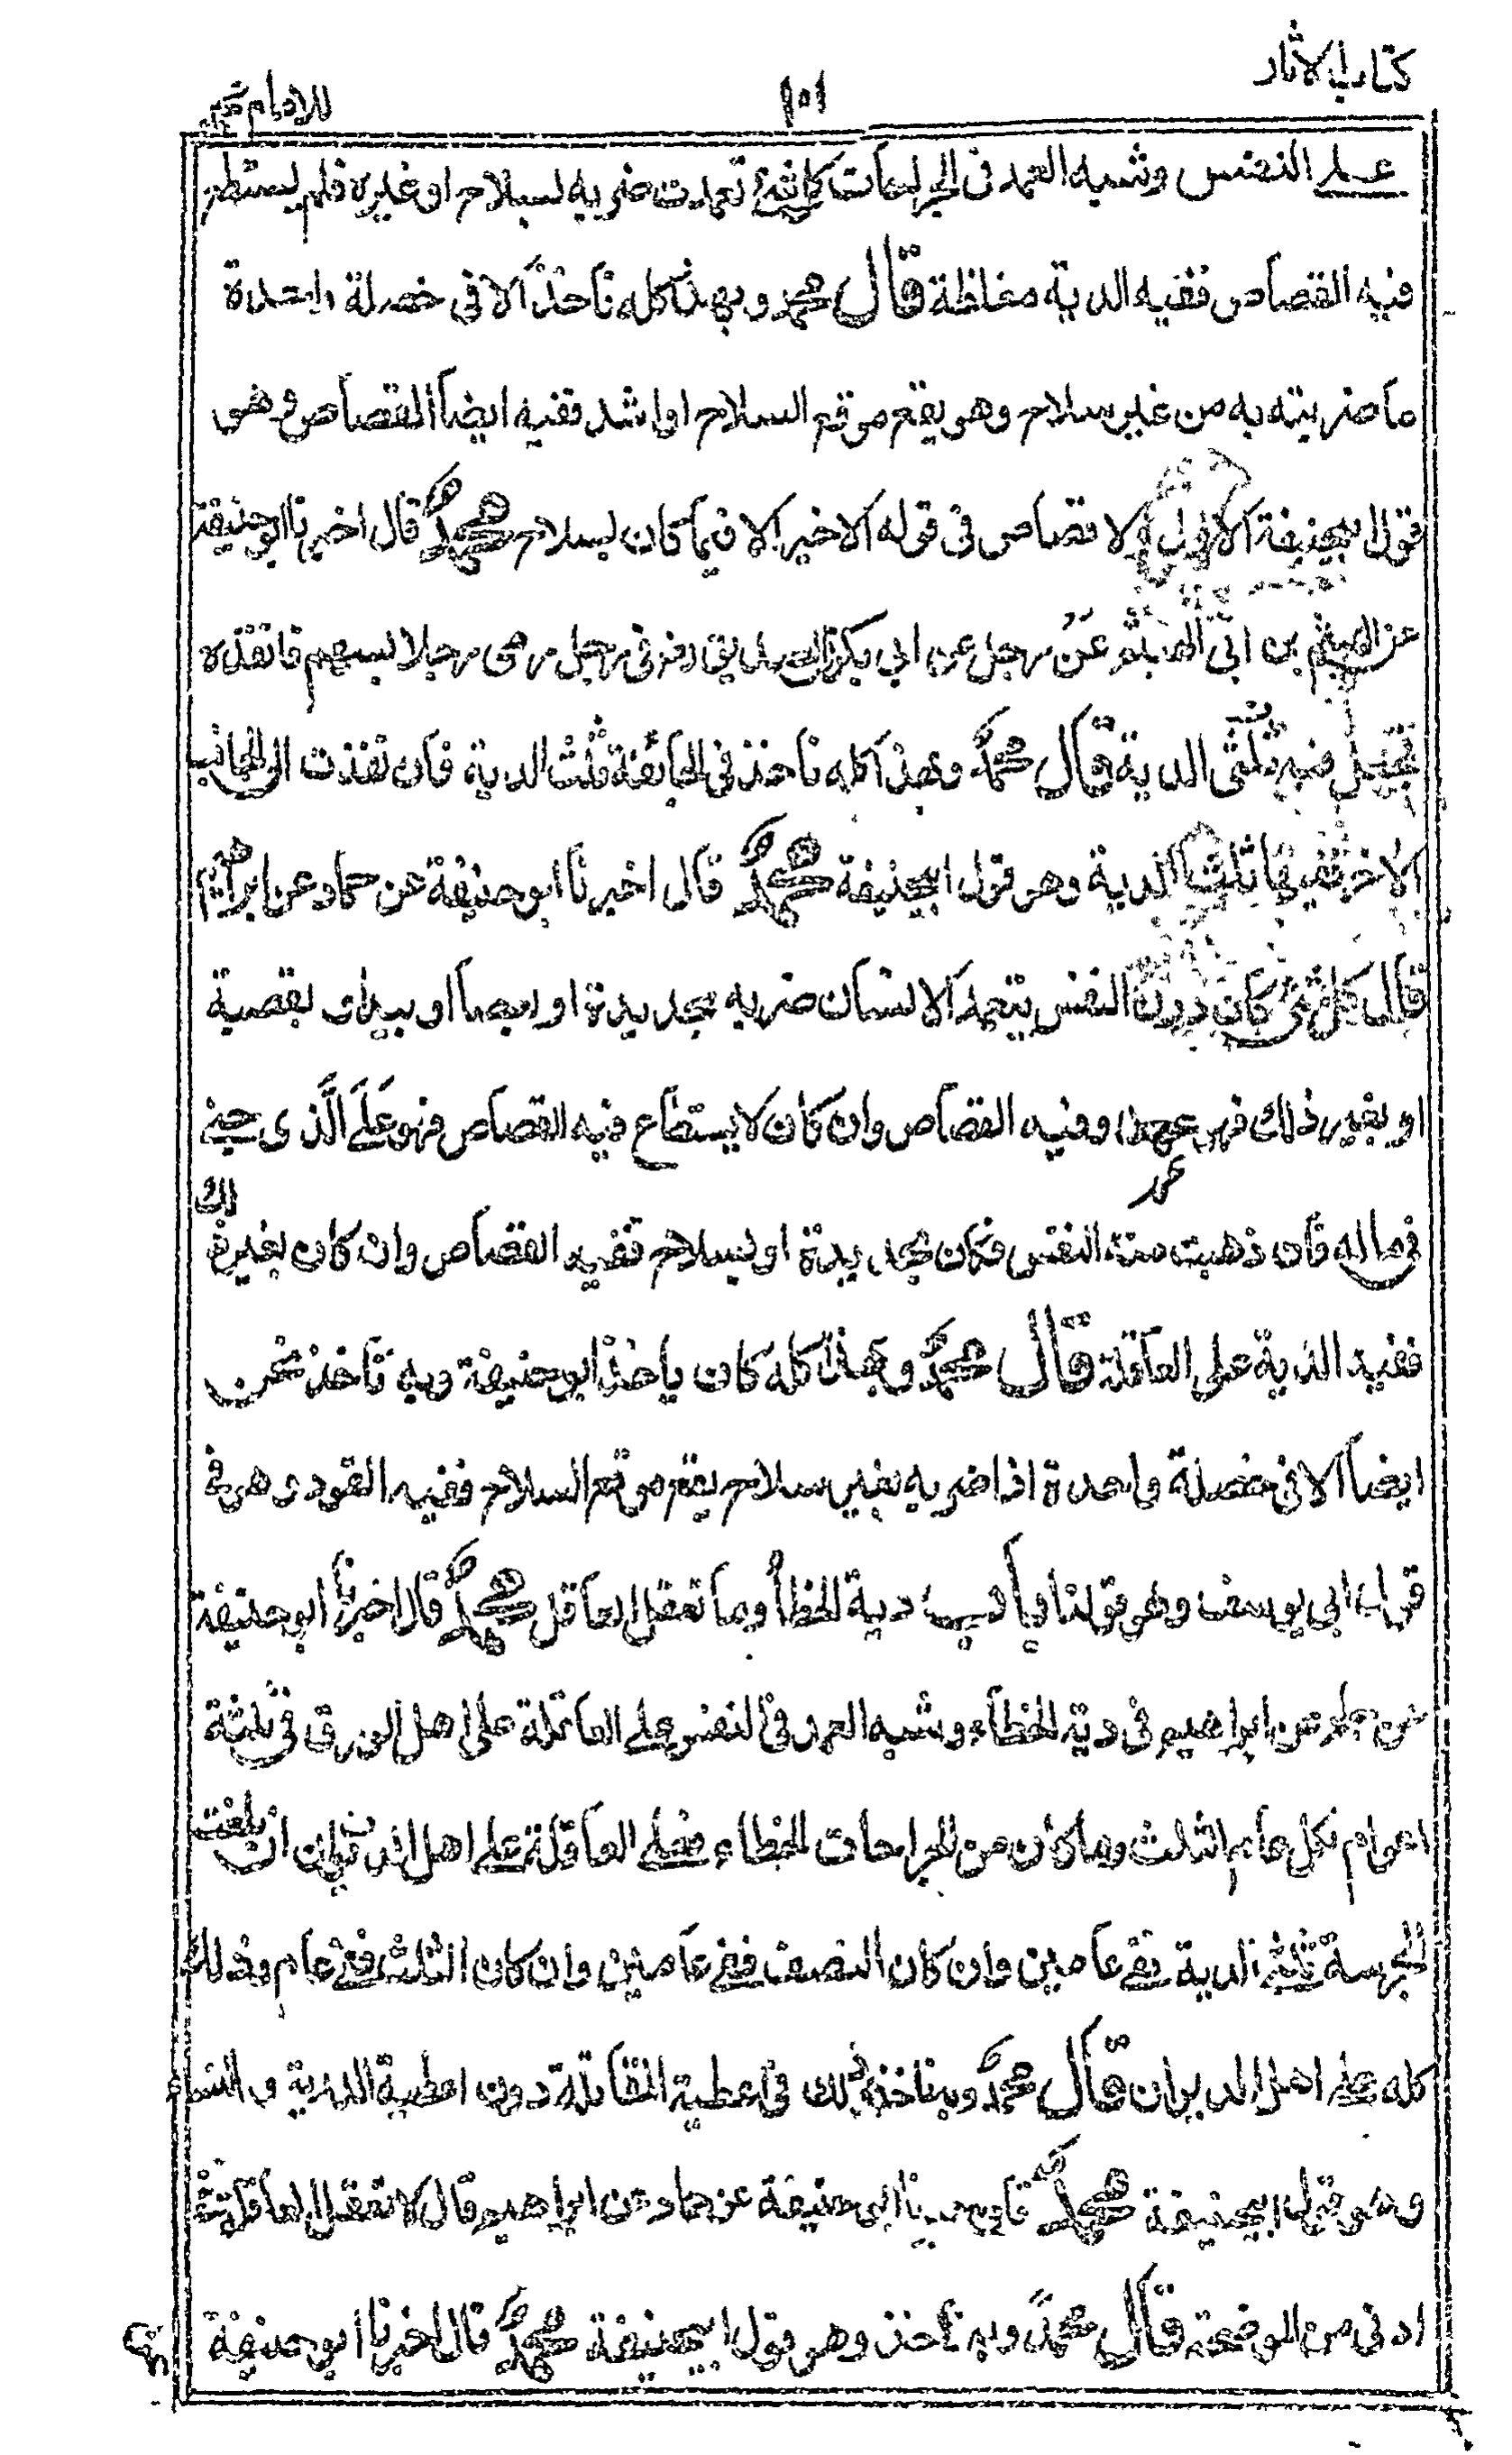 كتاب الاثار
١٠١
للامام محمد
على النفس وشبه العمد فى الجراحات كل شئ تعمدت ضربه بسلاح او غيره فلم يستطع
فيه القصاص ففيه الدية مغلظة قال محمد وبهذا كله نأخذ الا فى خصلة واحدة
ما ضربته به من غير سلاح وهو يقع موقع السلاح او اشد ففيه ايضا القصاص وهى
قول ابيحنيفة الاول ولا قصاص فى قوله الاخير الا فيما كان بسلاح محمد قال اخبرنا ابو حنيفة
عن الهيثم بن ابى الهيثم عن رجل عن ابي بكر الصديق رض فى رجل رمى رجلا بسهم فانفذه
فجعل فيه ثلثى الدية قال محمد وبهذا كله نأخذ فى الجائفة ثلث الدية فان نفذت الى الجانب
الاخر ففيها ثلثا الدية وهو قول ابيحنيفة محمد قال اخبرنا ابو حنيفة عن حماد عن ابراهيم
قال كل شئ كان دون النفس يتعمد الانسان ضربه بحديدة او بعصا او بيد او بقصبة
او بغير ذلك فهو عمد وفيه القصاص وان كان لا يستطاع فيه القصاص فهو على الذى جنى
عمد
فى ماله فان ذهبت منه النفس فكان بحديدة او بسلاح ففيه القصاص وان كان بغير ذلك
ففيه الدية على العاقلة قال محمد وبهذا كله كان ياخذ ابو حنيفة وبه نأخذ نحن
ايضا الا فى خصلة واحدة اذا ضربه بغير سلاح يقع موقع السلاح ففيه القود وهو فى
قول ابى يوسف وهو قولنا باب دية الخطأ وما تعقل العاقل محمد قال اخبرنا ابو حنيفة
عن حماد عن ابراهيم فى دية الخطأ وشبه العمد فى النفس على العاقلة على اهل الورق فى ثلثة
اعوام لكل عام الثلث وما كان من الجراحات الخطاء فعلى العاقلة على اهل الديوان ان بلغت
الجرحة ثلثى الدية ففى عامين وان كان النصف ففى عامين وان كان الثلث ففى عام وذلك
كله على اهل الديوان قال محمد وبهذا نأخذ وذلك فى اعطية المقاتلة دون اعطية الذرية والنساء
وهو قول ابيحنيفة محمد قال اخبرنا ابو حنيفة عن حماد عن ابراهيم قال لا تعقل العاقلة
ادنى من الموضحة قال محمد وبه نأخذ وهو قول ابيحنيفة محمد قال اخبرنا ابو حنيفة